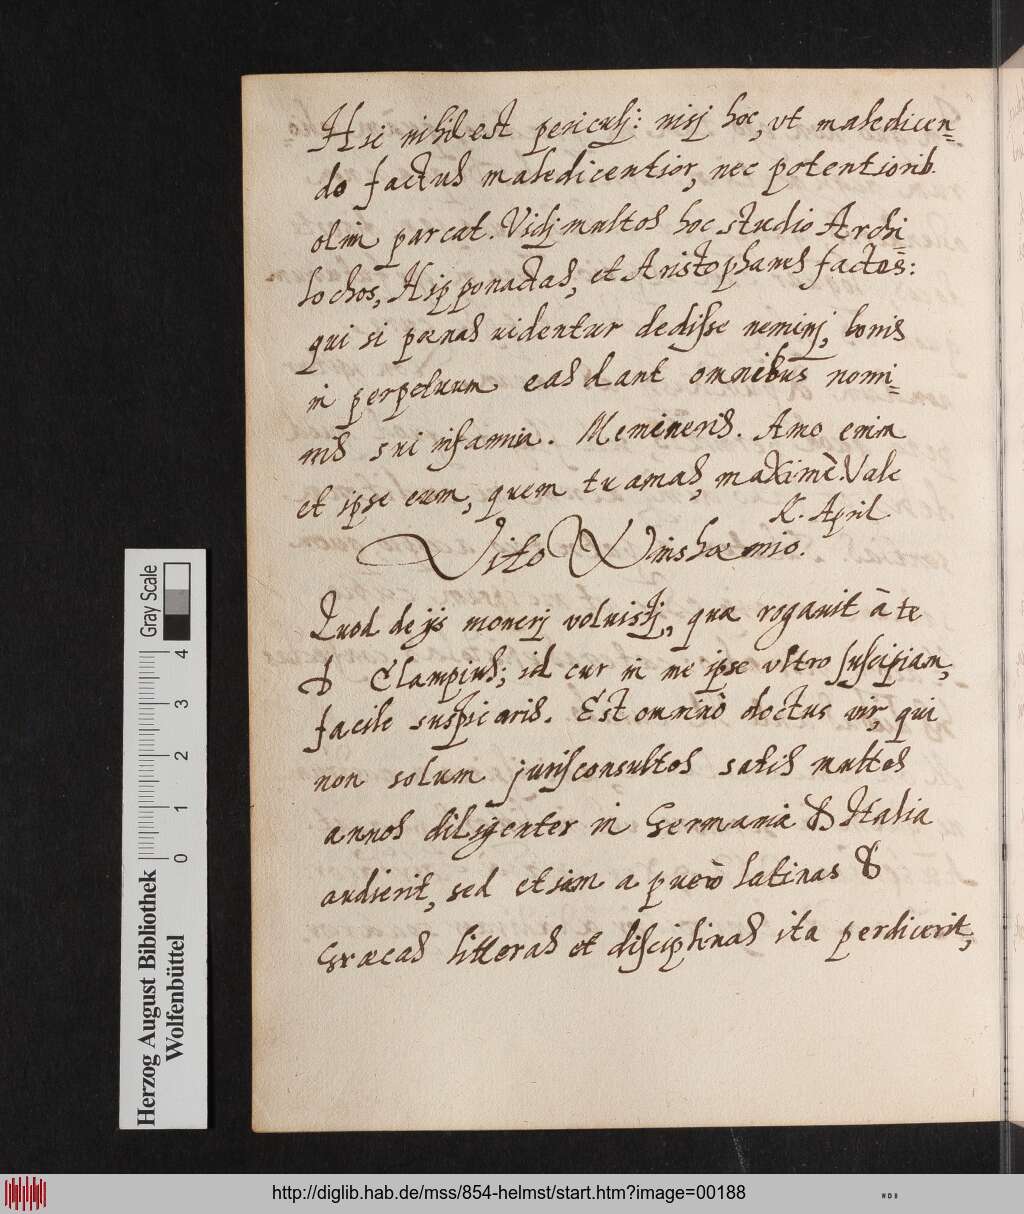 H si nihil est periculj: nisj hoc, vt maledicen=
do factus maledicentior, nec potentiorib.
olim parcat. Vidj multos hoc studio Archi=
lochos, Hipponactas, et Aristophanes factos:
qui si pœnas uidentur dedisse neminj, bonis
in perpetuum eas dant omnibus nomi=
nis sui infamia. Memineris. Amo enim
et ipse eum, quem tu amas, maximè. Vale
K. April.
Vito Winshœmio.
Quod de ijs monerj voluistj, quæ rogauit à te
D Clampius; id cur in me ipse vltro suscipiam,
facile suspicaris. Est omninò doctus vir, qui
non solum jurisconsultos satis multos
annos diligenter in Germania & Italia
audierit, sed etiam a puerò latinas &
Græcas litteras et disciplinas ita perdicerit,
Herzog August Bibliothek
Wolfenbüttel
0 1 2 3 4
Gray Scale
http://diglib.hab.de/mss/854-helmst/start.htm?image=00188
WDB